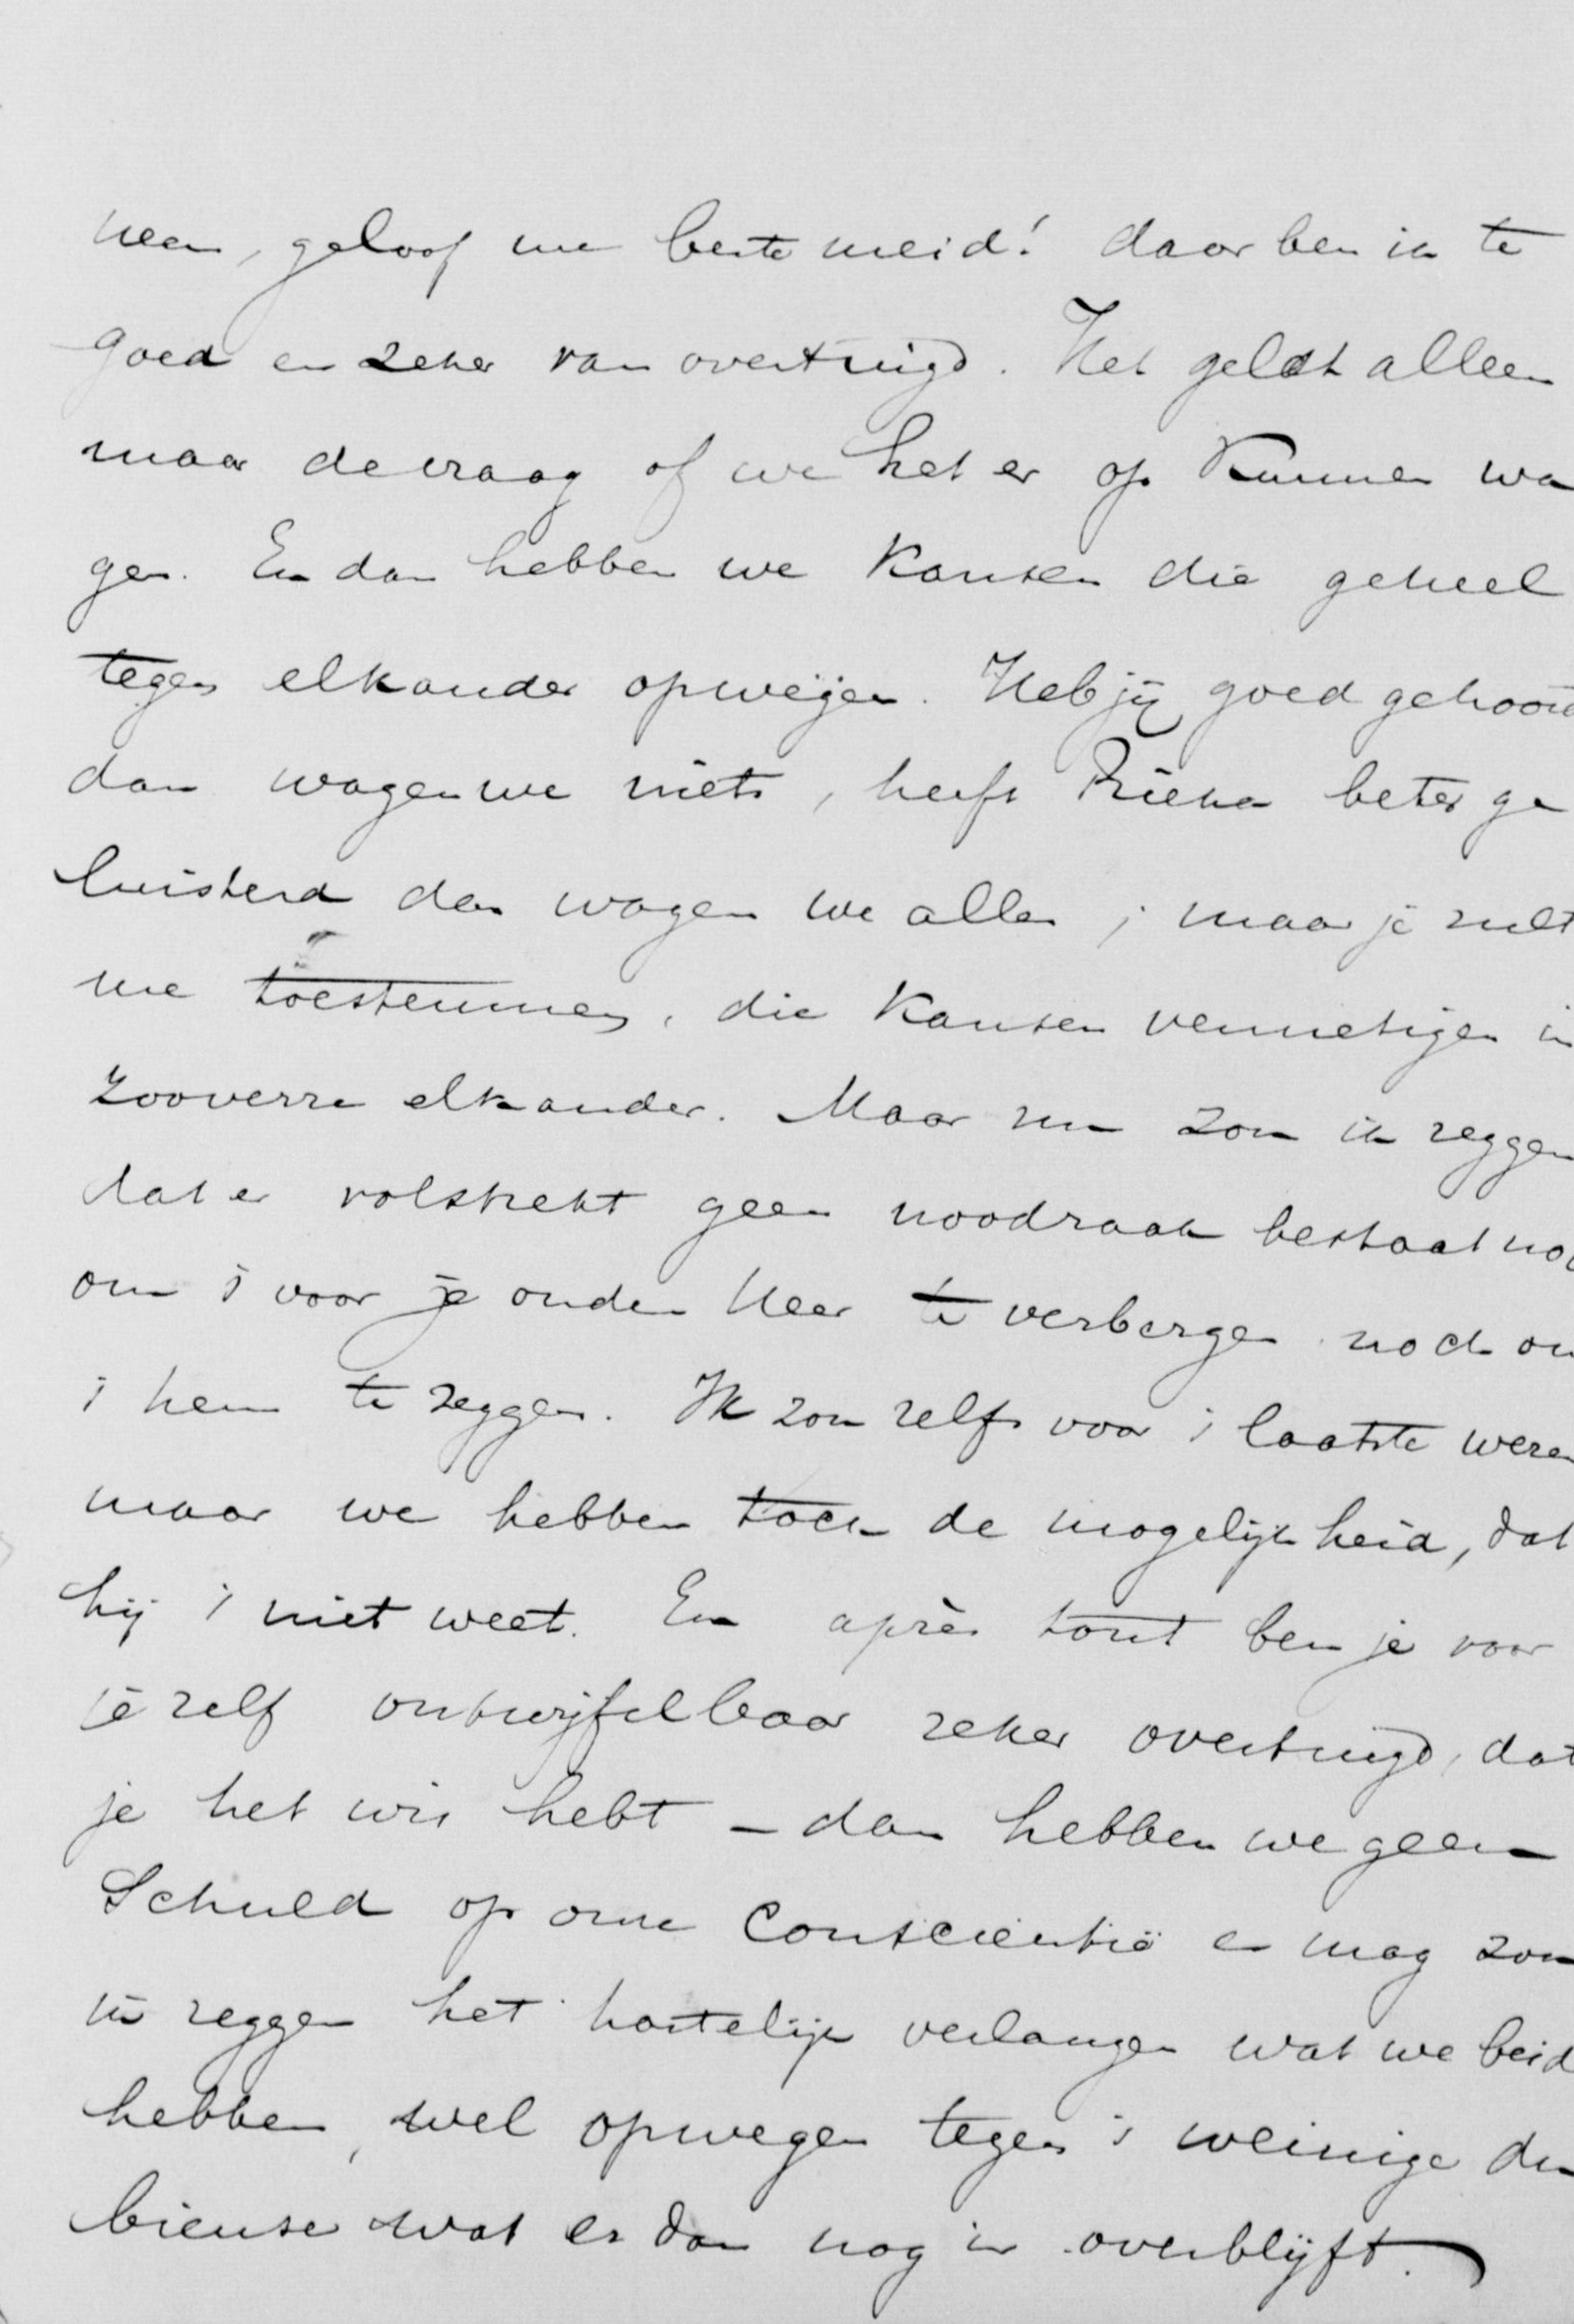 neen, geloof me beste meid! daar ben ik te
goed en zeker van overtuigd. Het geldt alleen
maar de vraag of we het er op kunnen wa
gen. En dan hebben we kansen die geheel
tegen elkander opwegen. Heb jij goed gehoord
dan wagen we niets, heeft Rieka beter ge
luisterd dan wagen we alles; maar je zult
me toestemmen, die kansen vernietigen in
zooverre elkander. Maar nu zou ik zeggen
dat er volstrekt geen noodzaak bestaat noch
om 't voor je ouden Heer te verbergen noch om
't hem te zeggen. Ik zou zelfs voor 't laatste wezen
maar we hebben toch de mogelijkheid, dat
hij 't niet weet. En après tout ben je voor
je zelf ontwijfelbaar zeker overtuigd, dat
je het wis hebt – dan hebben we geen
Schuld op onze Conscientie en mag zou
ik zeggen het hartelijk verlangen wat we beid
hebben, wel opwegen tegen 't weinige du
bieuse wat er dan nog in overblijft.